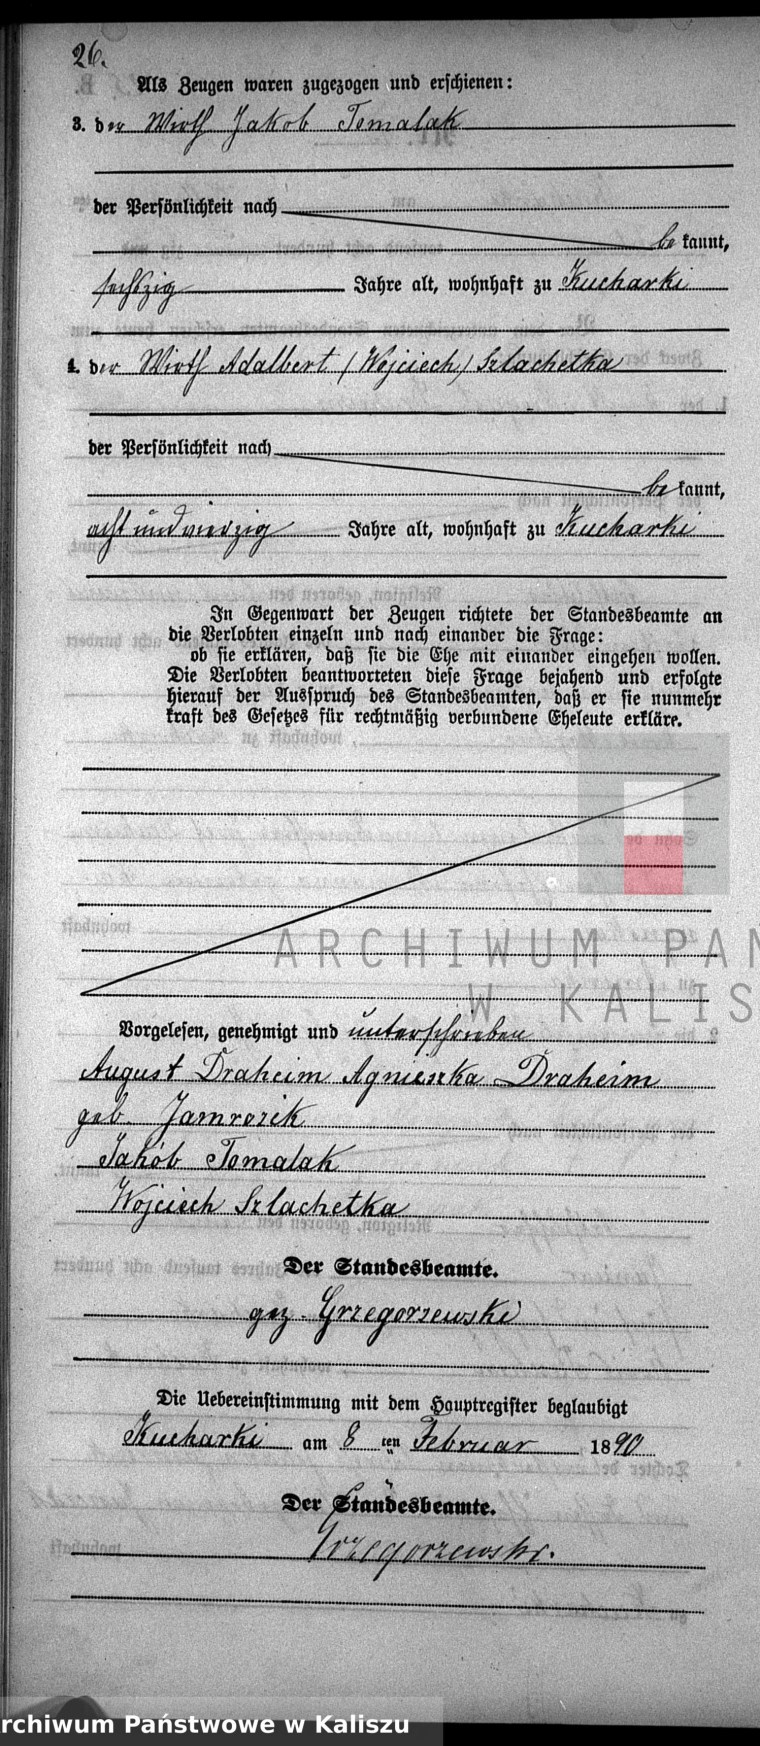 26.
Als Zeugen waren zugezogen und erschienen:
3. der Wirth Jakob Tomalak
der Persönlichkeit nach
be kannt,
sechszig Jahre alt, wohnhaft zu Kucharki
4. der Wirth Adalbert (Wojciech) Szlachetka
der Persönlichkeit nach
be kannt,
acht und vierzig Jahre alt, wohnhaft zu Kucharki
In Gegenwart der Zeugen richtete der Standesbeamte an
die Verlobten einzeln und nach einander die Frage:
ob sie erklären, daß sie die Ehe mit einander eingehen wollen.
Die Verlobten beantworteten diese Frage bejahend und erfolgte
hierauf der Ausspruch des Standesbeamten, daß er sie nunmehr
kraft des Gesetzes für rechtmäßig verbundene Eheleute erkläre.
ARCHIWUM PAN
W KALIS
Vorgelesen, genehmigt und unterschrieben
August Draheim Agnieszka Draheim
geb. Jamrozik
Jakób Tomalak
Wojciech Szlachetka
Der Standesbeamte.
gez. Grzegorzewski
Die Uebereinstimmung mit dem Hauptregister beglaubigt
Kucharki am 8 ten Februar 1890
Der Standesbeamte.
Grzegorzewski.
Archiwum Państwowe w Kaliszu